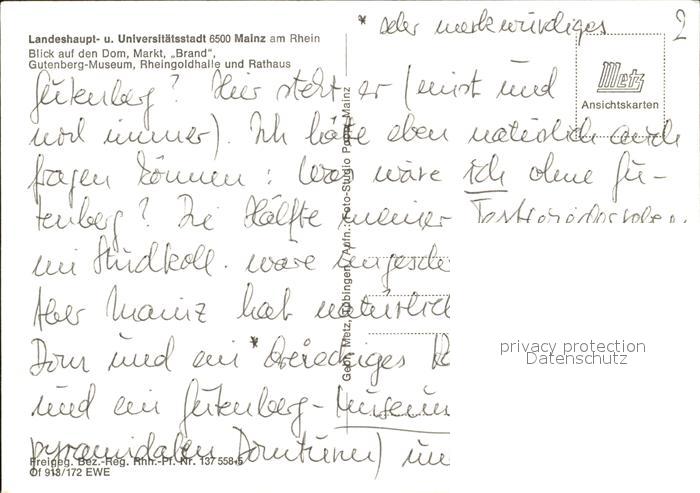 * oder merkwürdiges
2
Landeshaupt- u. Universitätsstadt 6500 Mainz am Rhein
Blick auf den Dom, Markt, „Brand",
Gutenberg-Museum, Rheingoldhalle und Rathaus
Metz
Ansichtskarten
Gutenberg? Hier steht er (mist und
noch immer). Ich hätte eben natürlich auch
fragen können: Was wäre ich ohne Gu-
tenberg? Die Hälfte meiner
im Studkoll. wäre
Aber Mainz hat natürlich
Dom und ein *dreieckiges
und ein Gutenberg-Museum
pyramidalen Domturm)
Gebr. Metz, Tübingen Aufn.: Foto-Studio Mainz
Freigeg. Bez.-Reg. Rhh.-Pf. Nr. 137 558-5
Of 913/172 EWE
privacy protection
Datenschutz